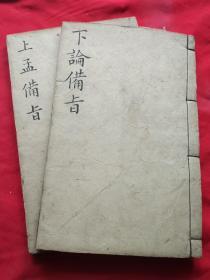 下論備旨
上孟備旨